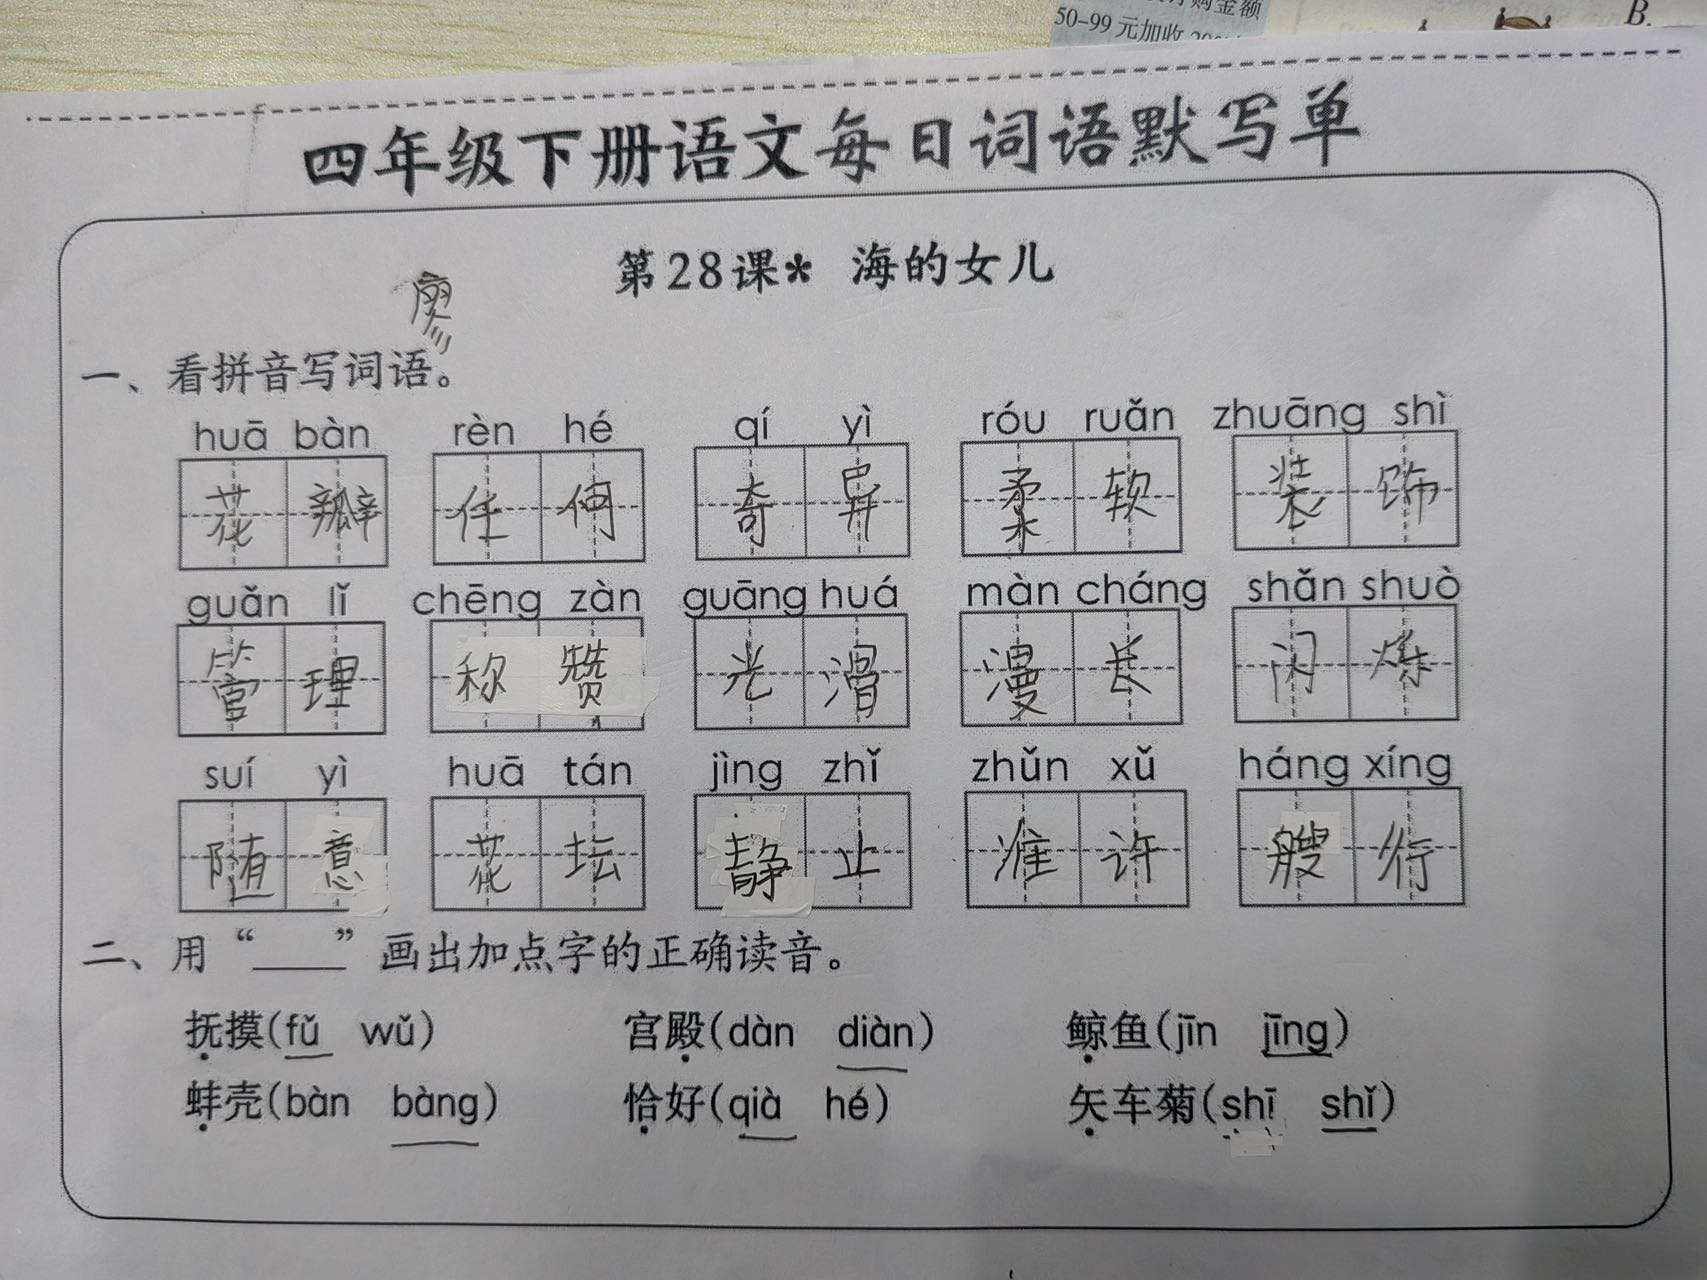 50-99元加收
B.
四年级下册语文每日词语默写单
第28课* 海的女儿
廖
一、看拼音写词语。
huā bàn rèn hé qí yì róu ruǎn zhuāng shì
花瓣 任何 奇异 柔软 装饰
guǎn lǐ chēng zàn guāng huá màn cháng shǎn shuò
管理 称赞 光滑 漫长 闪烁
suí yì huā tán jìng zhǐ zhǔn xǔ háng xíng
随意 花坛 静止 准许 艘行
二、用“____”画出加点字的正确读音。
抚摸(fǔ wǔ) 宫殿(dàn diàn) 鲸鱼(jīn jīng)
蚌壳(bàn bàng) 恰好(qià hé) 矢车菊(shī shǐ)